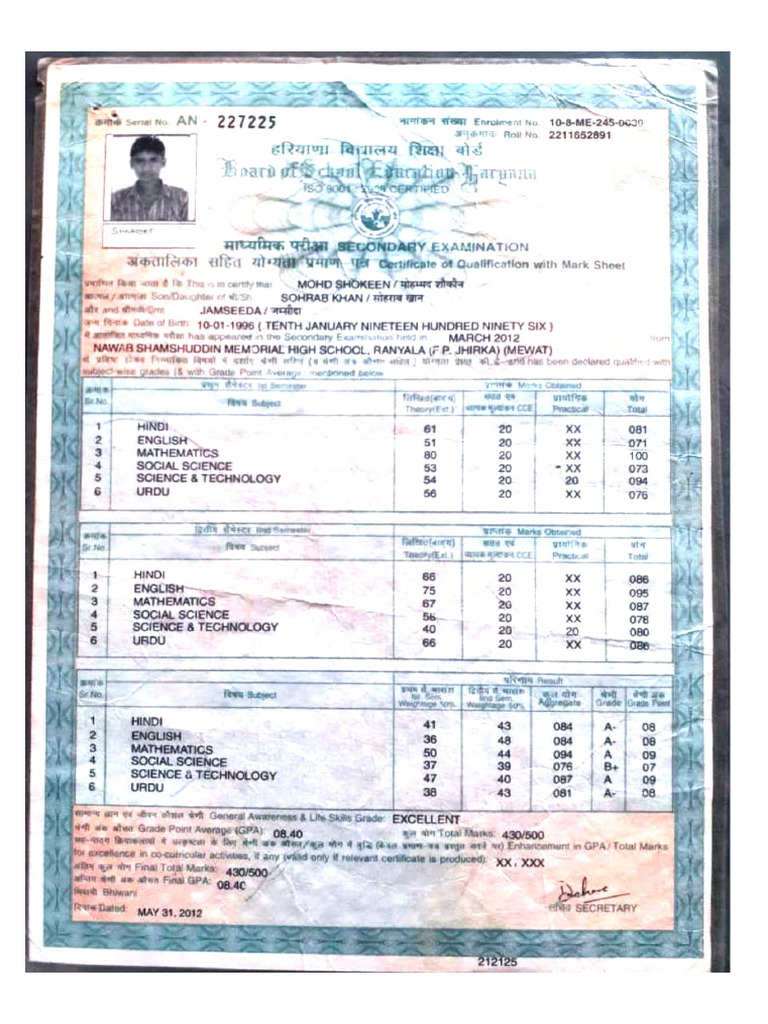 क्रमांक Serial No. AN - 227225
नामांकन संख्या Enrolment No. 10-8-ME-245-0630
अनुक्रमांक Roll No. 2211652891
हरियाणा विद्यालय शिक्षा बोर्ड
Board of School Education Haryana
ISO 9001 CERTIFIED
Shokeen
माध्यमिक परीक्षा SECONDARY EXAMINATION
अंकतालिका सहित योग्यता प्रमाण पत्र Certificate of Qualification with Mark Sheet
प्रमाणित किया जाता है कि This is to certify that MOHD SHOKEEN / मोहम्मद शौकीन
आत्मज / आत्मजा Son/Daughter of श्री/Sh SOHRAB KHAN / सोहराब खान
और and श्रीमती/Smt JAMSEEDA / जम्सीदा
जन्म दिनांक Date of Birth 10-01-1996 ( TENTH JANUARY NINETEEN HUNDRED NINETY SIX )
में आयोजित माध्यमिक परीक्षा has appeared in the Secondary Examination held in MARCH 2012 from
NAWAB SHAMSHUDDIN MEMORIAL HIGH SCHOOL, RANYALA (F.P. JHIRKA) (MEWAT)
से प्रविष्ट होकर निम्नांकित विषयों में and has been declared qualified with
subject-wise grades (& with Grade Point Average mentioned below
क्रमांक Sr.No. प्रथम सैमेस्टर Ist Semester प्राप्तांक Marks Obtained
विषय Subject लिखित(बाह्य) Theory(Ext.) सतत एवं व्यापक मूल्यांकन CCE प्रायोगिक Practical योग Total
1 HINDI 61 20 XX 081
2 ENGLISH 51 20 XX 071
3 MATHEMATICS 80 20 XX 100
4 SOCIAL SCIENCE 53 20 XX 073
5 SCIENCE & TECHNOLOGY 54 20 20 094
6 URDU 56 20 XX 076
क्रमांक Sr.No. द्वितीय सैमेस्टर IInd Semester प्राप्तांक Marks Obtained
विषय Subject लिखित(बाह्य) Theory(Ext.) सतत एवं व्यापक मूल्यांकन CCE प्रायोगिक Practical योग Total
1 HINDI 66 20 XX 086
2 ENGLISH 75 20 XX 095
3 MATHEMATICS 67 20 XX 087
4 SOCIAL SCIENCE 20 XX
5 SCIENCE & TECHNOLOGY 40 20 20 080
6 URDU 66 20 XX 086
क्रमांक Sr.No. परिणाम Result
विषय Subject प्रथम सै. भारांश Ist Sem. Weightage 50% द्वितीय सै. भारांश IInd Sem. Weightage 50% कुल योग Aggregate श्रेणी Grade श्रेणी अंक Grade Point
1 HINDI 41 43 084 A- 08
2 ENGLISH 36 48 084 A- 08
3 MATHEMATICS 50 44 094 A 09
4 SOCIAL SCIENCE 37 39 076 B+ 07
5 SCIENCE & TECHNOLOGY 47 40 087 A 09
6 URDU 38 43 081 A- 08
सामान्य ज्ञान एवं जीवन कौशल श्रेणी General Awareness & Life Skills Grade: EXCELLENT
श्रेणी अंक औसत Grade Point Average (GPA): 08.40 कुल योग Total Marks: 430/500
Enhancement in GPA / Total Marks
for excellence in co-curricular activities, if any (valid only if relevant certificate is produced): XX , XXX
अंतिम कुल योग Final Total Marks: 430/500
अन्तिम श्रेणी अंक औसत Final GPA: 08.40
भिवानी Bhiwani
दिनांक Dated: MAY 31, 2012
सचिव SECRETARY
212125